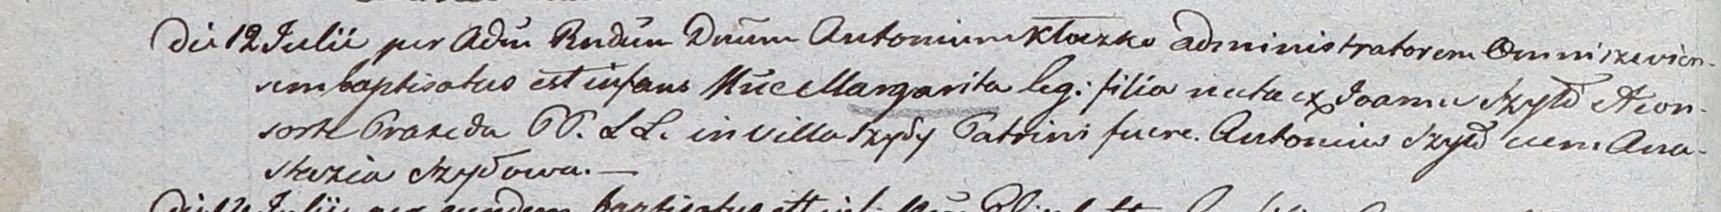 Die 12 Julii per Adm Rndum Dnum Antonium Kłoczko administratorem Omniszewien-
sem baptisatus est infans Nne Margarita leg: filia nata ex Joanne Szydł et con-
sorte Praxeda PP. LL. in villa Szydy Patrini fuere. Antonius Szydł cum Ana-
stazia Szydłowa. —
Die 12 Julii per eundem baptisatus est inf: